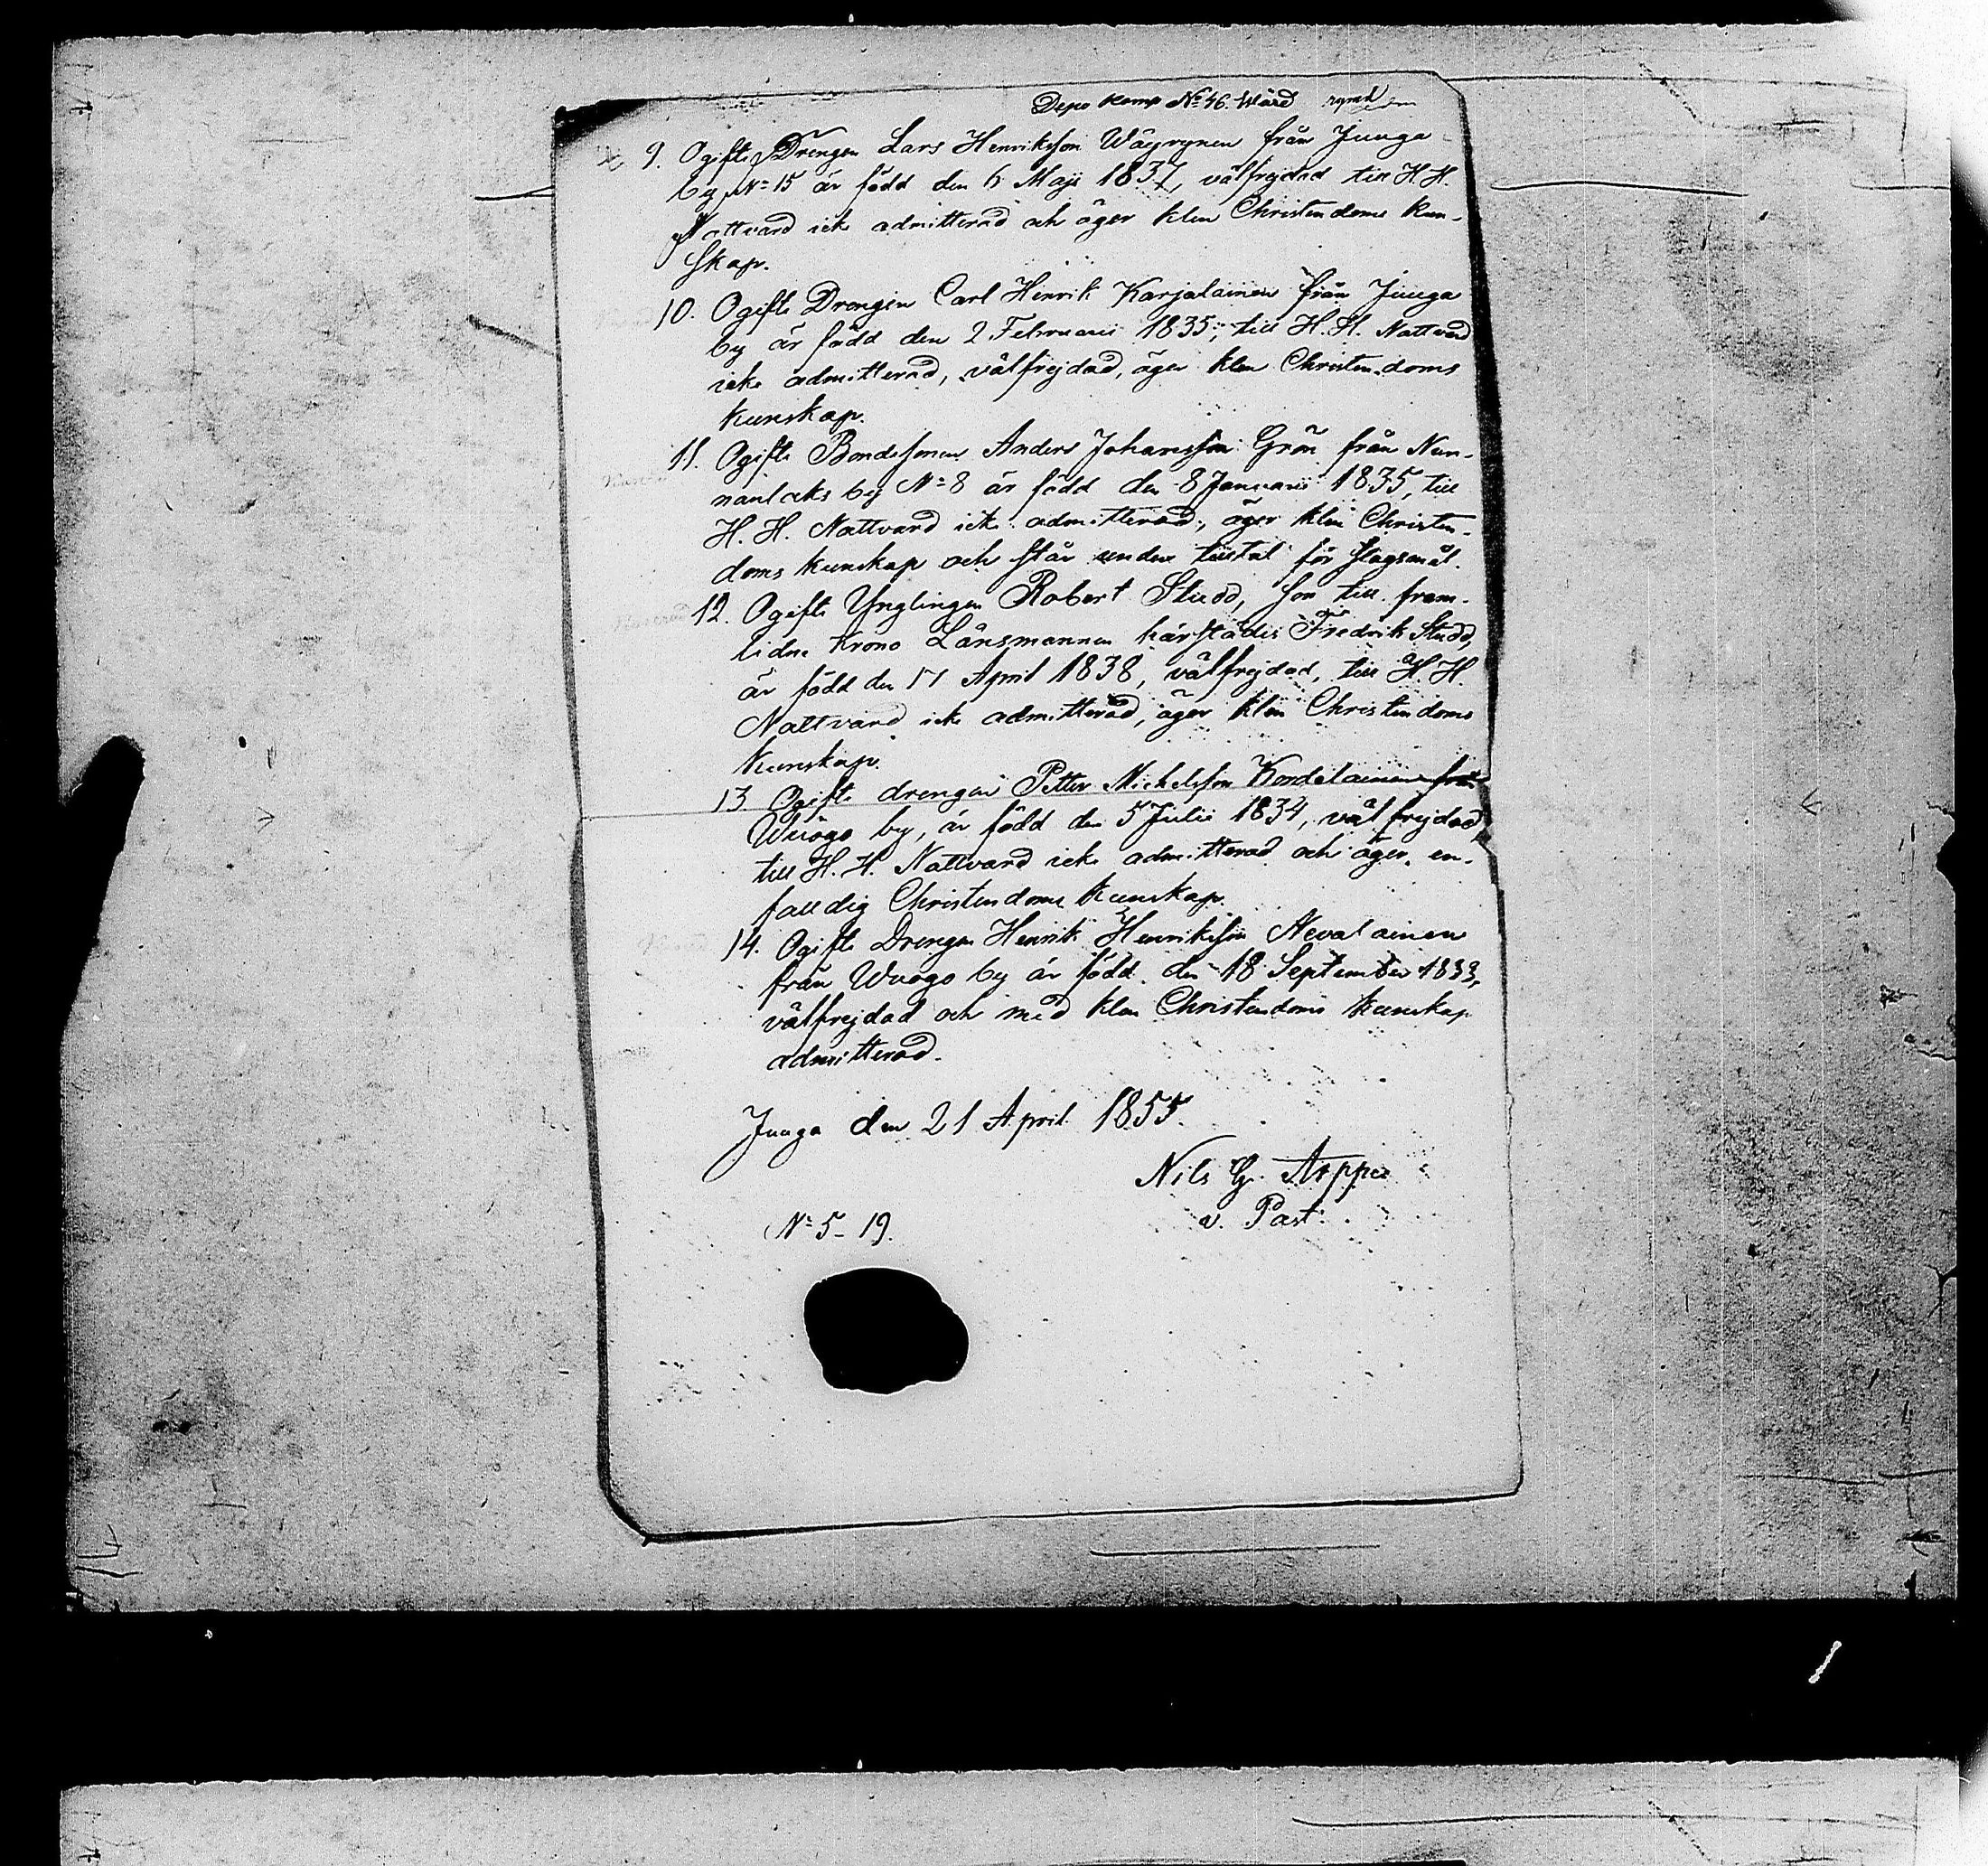 Depo komp No 46. Wärd rymd
9. Ogifte Drengen Lars Henriksson Wäyrynen från Juuga
by No 15 är född den 6 Maji 1837, välfrejdad till H. H.
Nattvard icke admitterad och äger klen Christendoms kun-
skap.
10. Ogifte Drengen Carl Henrik Karjalainen från Juuga
by är född den 2 Februarii 1835, till H. H. Nattvard
icke admitterad, välfrejdad, äger klen Christendoms
kunskap.
11. Ogifte Bondesonen Anders Johansson Grön från Nun-
nanlaks by No 8 är född den 8 Januarii 1835, till
H. H. Nattvard icke admitterad, äger klen Christen-
doms kunskap och står under tiltal för slagsmål.
12. Ogifte Ynglingen Robert Studd, son till fram-
lidne Krono Länsmannen härstädes Fredrik Studd,
är född den 17 April 1838, välfrejdad, till H. H.
Nattvard icke admitterad, äger klen Christendoms
kunskap.
13 Ogifte drengen Petter Michelsson Kordelainen från
Wuogo by, är född den 5 Julii 1834, välfrejdad
till H. H. Nattvard icke admitterad och äger en-
falldig Christendoms kunskap.
14. Ogifte Drengen Henrik Henriksson Nevalainen
från Wuogo by är född den 18 September 1833,
välfrejdad och med klen Christendoms kunskap
admitterad.
Juuga den 21 April 1855.
Nils G. Arppe
v. Past.
No 5 - 19.